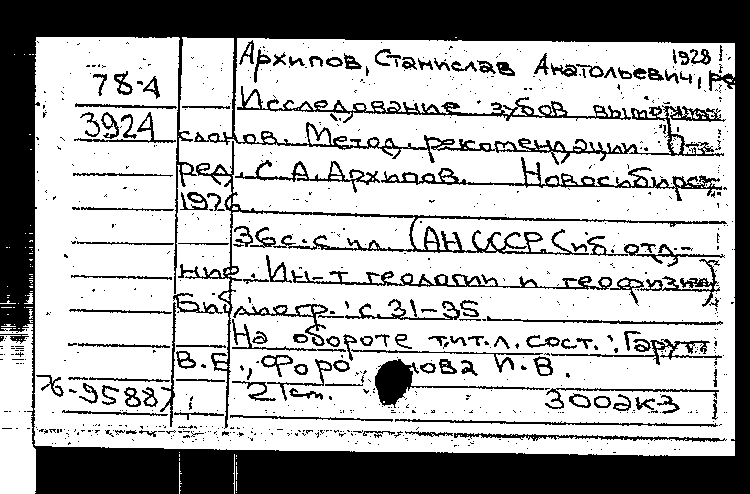 1928
Архипов, Станислав Анатольевич, ре
78-4
Исследование зубов вымерших
3924
слонов. Метод. рекомендации.
ред. С.А. Архипов. Новосибирск,
1976.
36 с. с ил. (АН СССР. Сиб. отд-
ние. Ин-т геологии и геофизики)
Библиогр.: с. 31-35.
На обороте тит. л. сост.: Гарутт
В.Е., Форо нова И.В.
76-95887
21 см. 300 экз